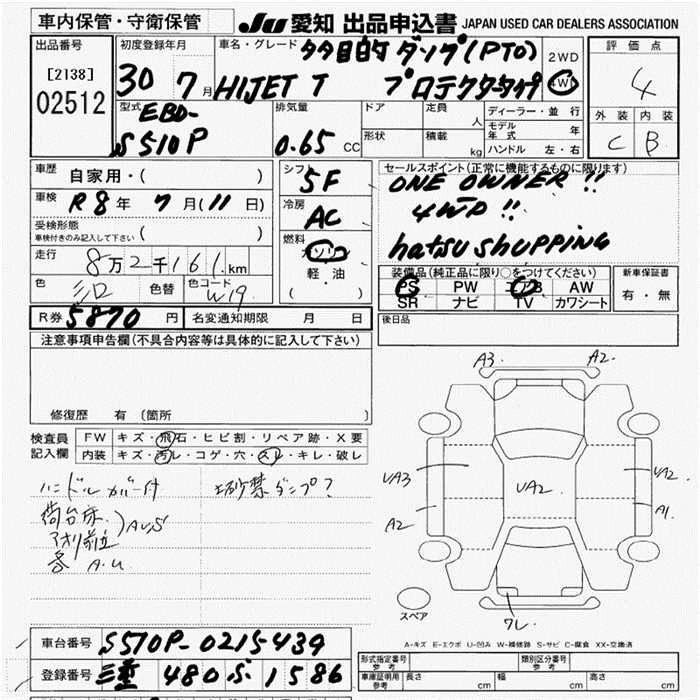 車内保管・守衛保管
JU 愛知 出品申込書 JAPAN USED CAR DEALERS ASSOCIATION
出品番号
[2138]
02512
初度登録年月
30 7月
車名・グレード 多目的ダンプ(PTO)
HIJET T プロテクタータイプ
2WD
4WD
評価点
4
外装 内装
C B
型式 EBD-
S510P
排気量
0.65 CC
ドア
形状
定員 人
積載 kg
ディーラー・並行
モデル年式 年
ハンドル 左・右
車歴 自家用・( )
車検 R8年 7月(11日)
受検形態
車検付きのみ記入して下さい ( )
走行 8万2千161 km
色 シロ 色替 色コード W19
R券 5870 円 名変通知期限 月 日
シフト 5F
冷房 AC
燃料
ガソリン
軽・油
( )
セールスポイント(正常に機能するものに限ります)
ONE OWNER !!
4WD !!
hatsu shUPPING
装備品(純正品に限り○をつけてください)
PS PW エアB AW
SR ナビ TV カワシート
新車保証書
有・無
後日品
注意事項申告欄(不具合内容等は具体的に記入して下さい)
修復歴 有(箇所
検査員記入欄
FW キズ・飛石・ヒビ割・リペア跡・X要
内装 キズ・汚レ・コゲ・穴・スレ・キレ・破レ
ハンドルカバー付 土砂禁ダンプ?
荷台床
アオリ前立 AUS
各 A.U
A3 A2
UA3 UA2 UA2
A2 A1
ワレ
スペア
A-キズ E-エクボ U-凹み W-補修跡 S-サビ C-腐食 XX-交換済
車台番号 S510P-0215439
登録番号 三重 480 S 1586
形式指定番号 参考
類別区分番号 参考
車庫証明用 参考 長さ cm 幅 cm 高さ cm